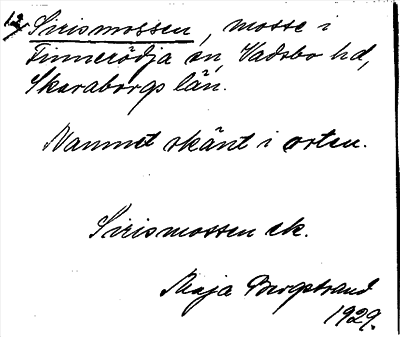 12/ Sirismossen, mosse i
Finnerödja sn, Vadsbo hd,
Skaraborgs län.
Namnet okänt i orten.
Sirismossen ek.
Maja Bergstrand
1929.